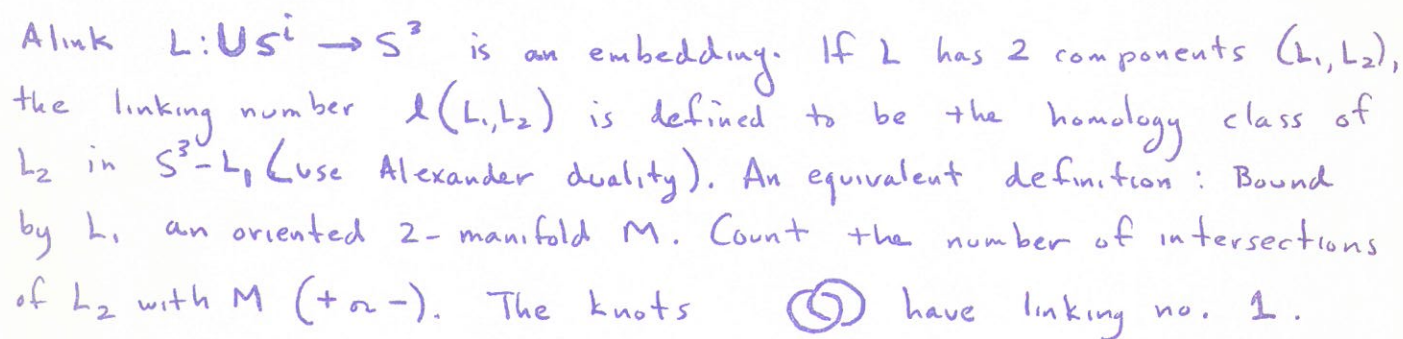 A link L: ∪S^i → S^3 is an embedding. If L has 2 components (L_1, L_2),
the linking number l(L_1, L_2) is defined to be the homology class of
L_2 in S^3 - L_1 (use Alexander duality). An equivalent definition: Bound
by L_1 an oriented 2-manifold M. Count the number of intersections
of L_2 with M (+ or -). The knots have linking no. 1.